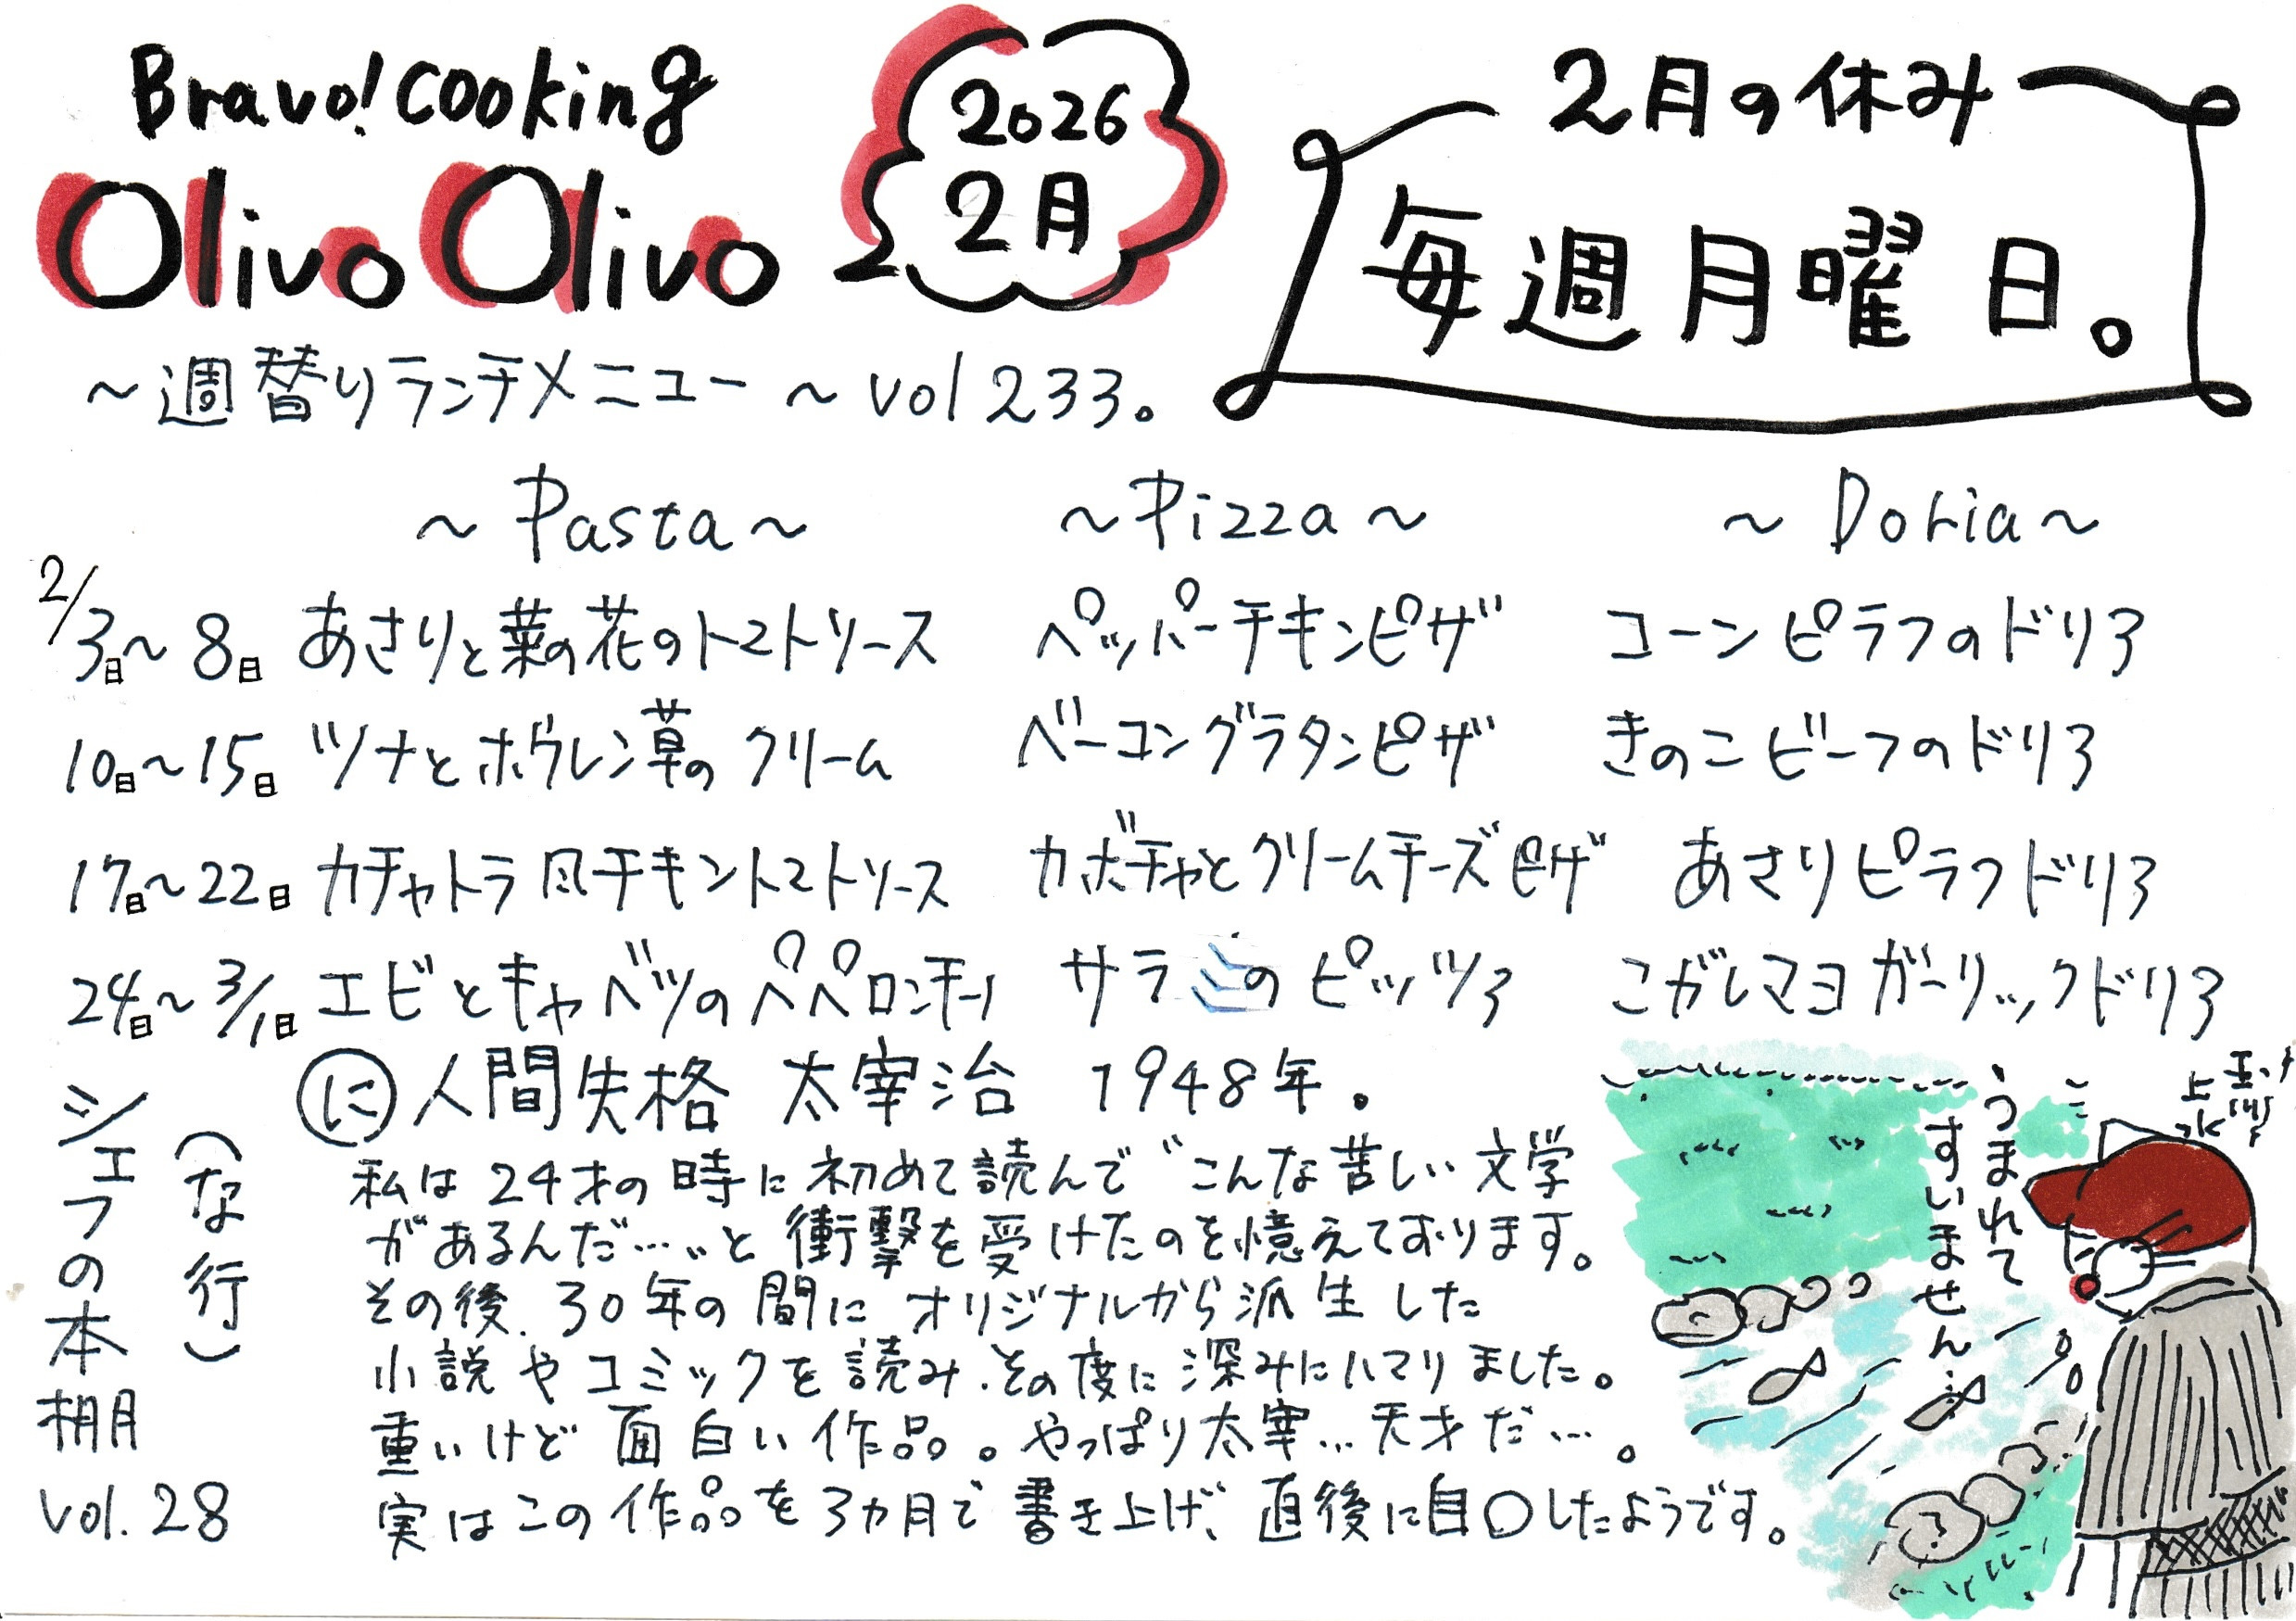 Bravo! Cooking
Olivo Olivo
2026
2月
2月の休み
毎週月曜日。
~週替りランチメニュー~ vol 233。
~Pasta~ ~Pizza~ ~Doria~
2/3日~8日 あさりと菜の花のトマトソース ペッパーチキンピザ コーンピラフのドリア
10日~15日 ツナとホウレン草のクリーム ベーコングラタンピザ きのこビーフのドリア
17日~22日 カチャトラ風チキントマトソース カボチャとクリームチーズピザ あさりピラフドリア
24日~3/1日 エビとキャベツのペペロンチーノ サラミのピッツア こがしマヨガーリックドリア
シェフの本棚
(な行)
vol.28
に 人間失格 太宰治 1948年。
私は24才の時に初めて読んで"こんな苦しい文学
があるんだ…"と衝撃を受けたのを憶えております。
その後、30年の間にオリジナルから派生した
小説やコミックを読み、その度に深みにハマりました。
重いけど面白い作品。やっぱり太宰…天才だ…。
実はこの作品を3ヵ月で書き上げ、直後に自〇したようです。
うまれて
すいません…
玉川
上水